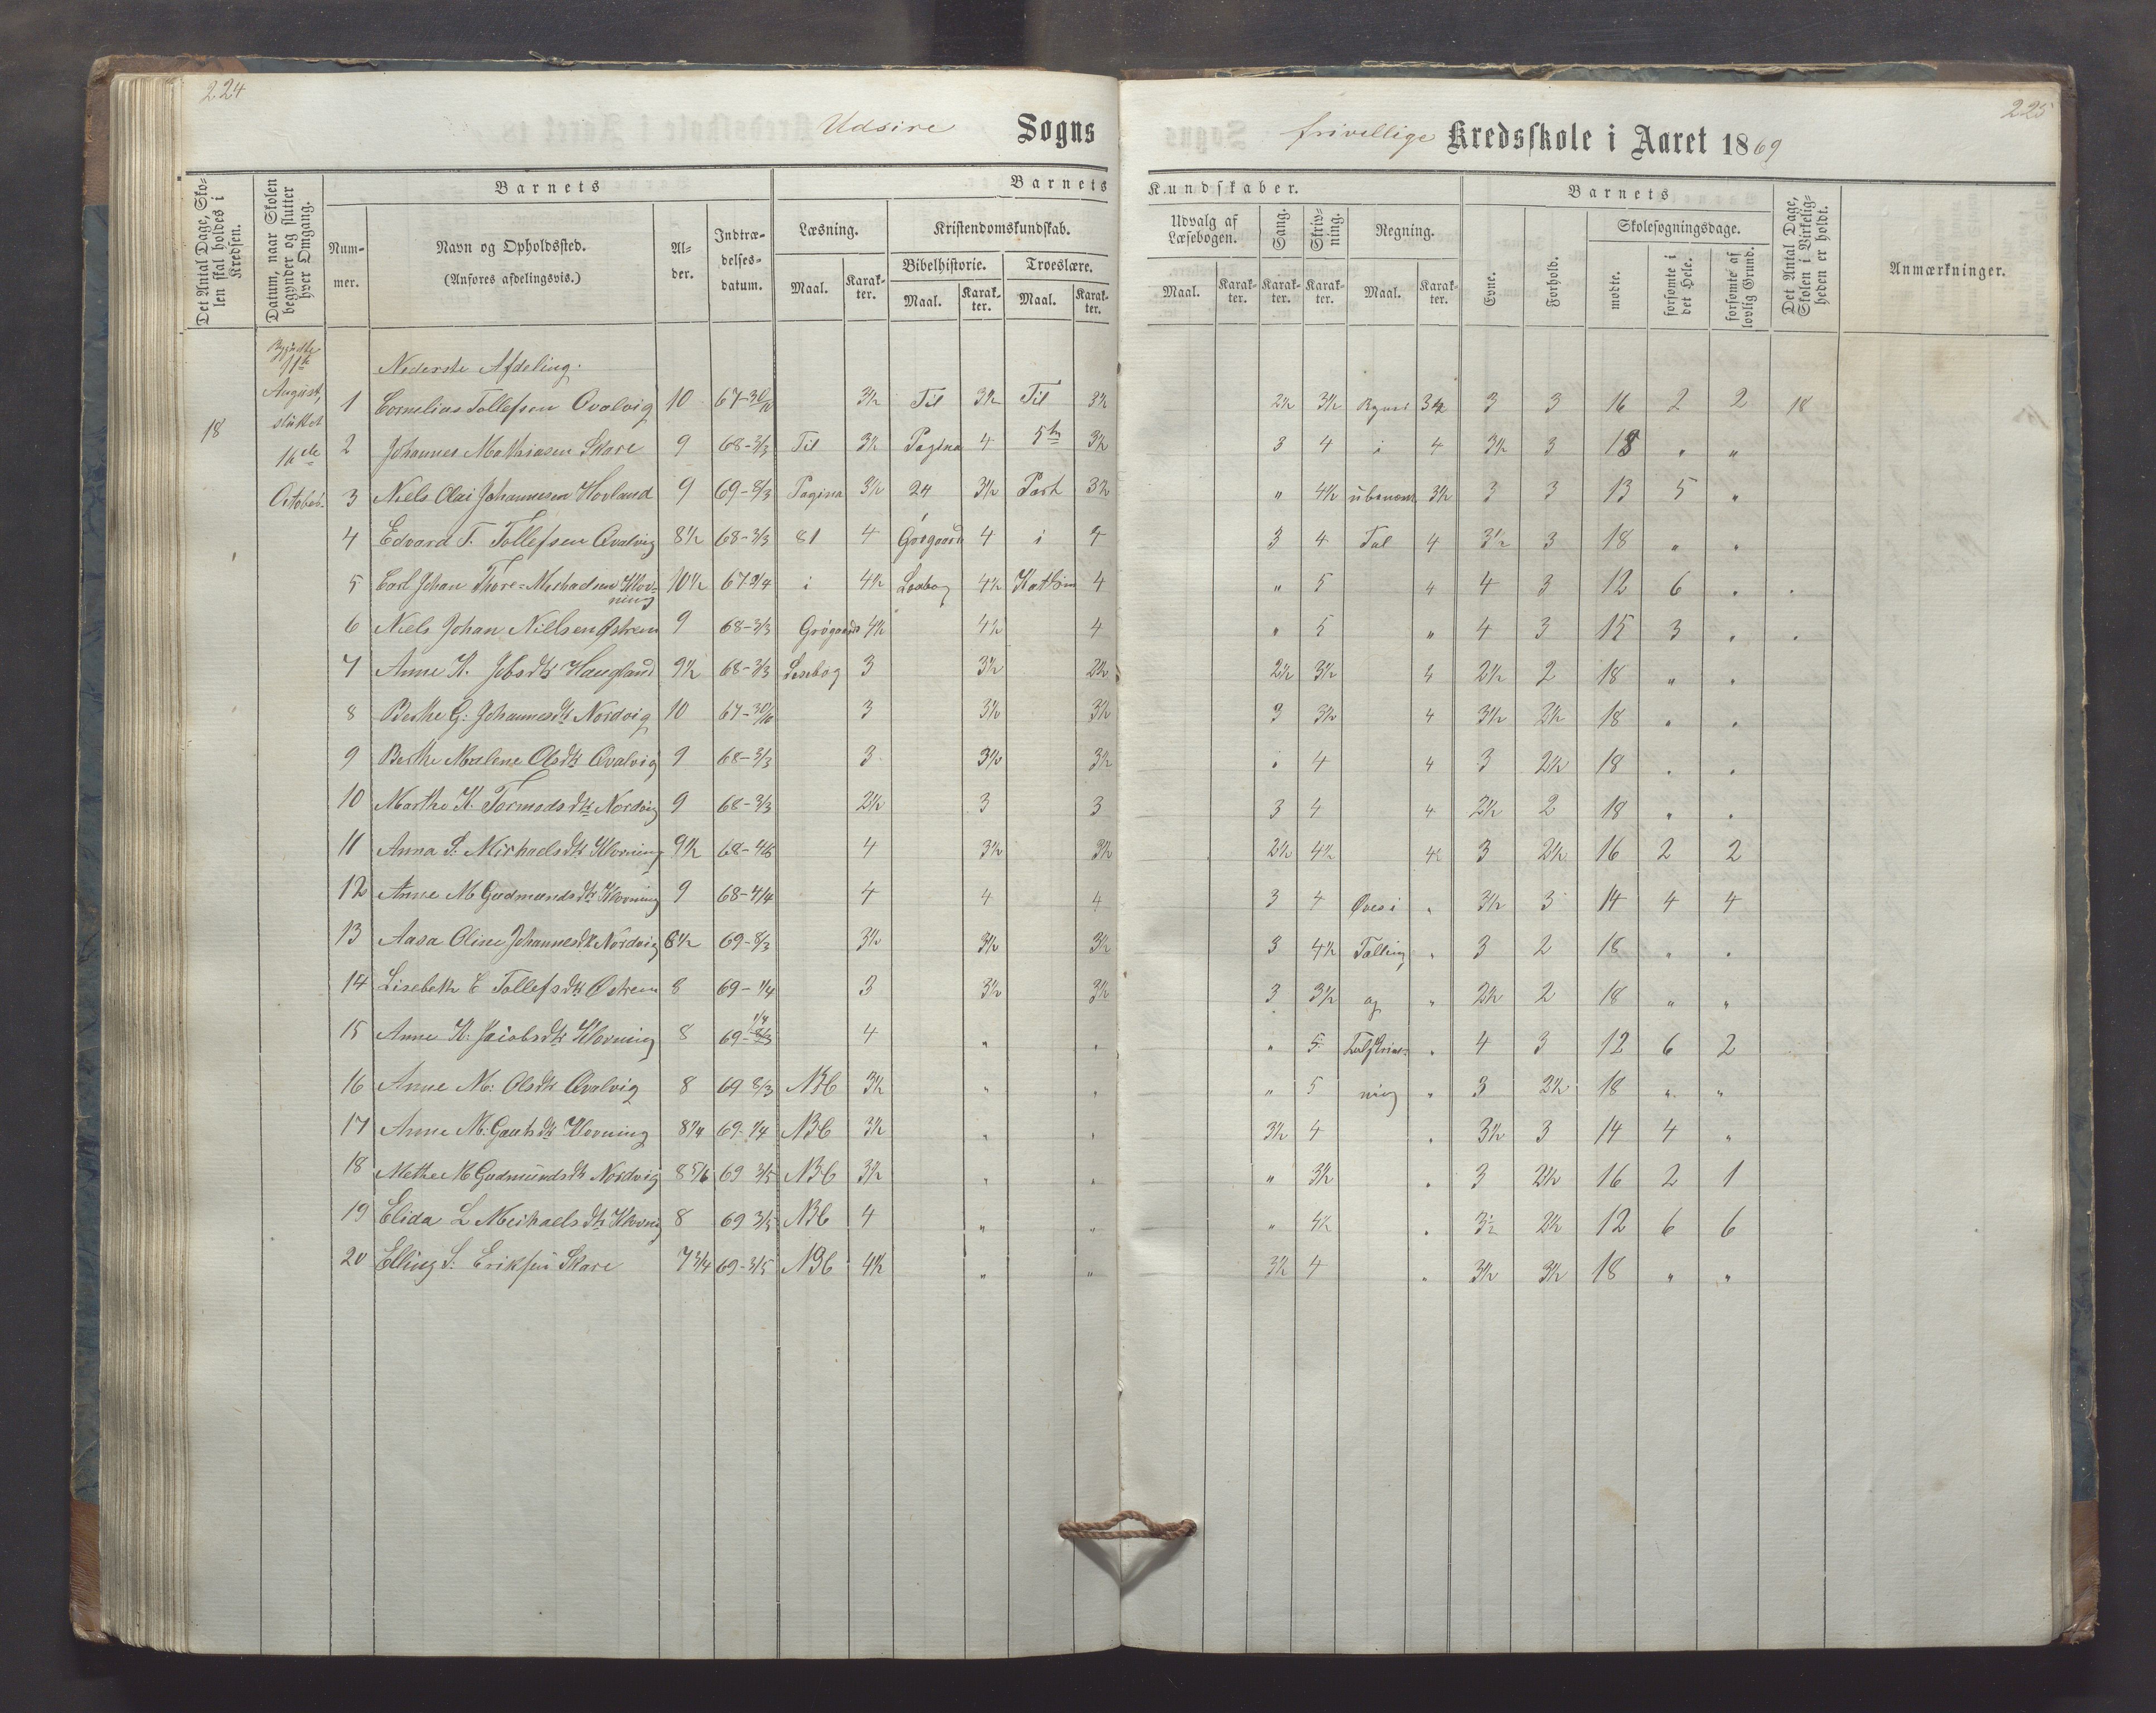 224
225
Udsire Sogns frivellige Kredsskole i Aaret 1869
Det Antal Dage, Skolen skal holdes i Kredsen.
Datum, naar Skolen begynder og slutter hver Omgang.
Barnets
Nummer.
Navn og Opholdssted.
(Anføres afdelingsvis.)
Alder.
Indtrædelsesdatum.
Barnets Kundskaber.
Læsning. Kristendomskundskab.
Bibelhistorie. Troeslære.
Maal. Karakter. Maal. Karakter. Maal. Karakter.
Udvalg af Læsebogen. Sang. Skrivning. Regning.
Maal. Karakter. Karakter. Karakter. Maal. Karakter.
Barnets
Evne. Forhold. Skolesøgningsdage.
mødte. forsømte i det Hele. forsømte af lovlig Grund.
Det Antal Dage, Skolen i Virkeligheden er holdt.
Anmærkninger.
August,
sluttet
October.
18
Nederste Afdeling.
1 Cornelius Tollefsen Qvalvig 10 67-30/10 3½ Til 3½ Til 3½ 2½ 3½ 3½ 3 3 16 2 2 18
2 Johannes Mathiasen Skare 9 68-3/3 Til 3½ Pagina 4 5te 3½ 3 4 i 4 3½ 3 18 " "
3 Niels Olai Johannesen Hovland 9 69-8/3 Pagina 3½ 24 3½ Part 3½ " 4½ ubenevnt 3½ 3 3 13 5 "
4 Edvard T. Tollefsen Qvalvig 8½ 68-3/3 81 4 Grøgaards 4 i 4 3 4 Tal 4 3½ 3 18 " "
5 Carl Johan Thore-Michaelsen Klovning 10½ 67-2/4 i 4½ 4½ 4 " 5 " 4 3 12 6 "
6 Niels Johan Nielsen Østrem 9 68-3/3 Grøgaards 4½ 4½ 4 " 5 " 4 3 15 3 "
7 Anne K. Jobsdtr Haugland 9½ 68-3/3 Lesebog 3 3½ 2½ 2½ 3½ 4 2½ 2 18 " "
8 Berthe G: Johannesdtr Nordvig 10 67-30/10 3 3½ 3½ 3 3½ 4 3½ 2½ 18 " "
9 Berthe Malene Olsdtr Qvalvig 9 68-3/3 3 3½ 3½ " 4 4 3 2½ 18 " "
10 Marthe K. Tormodsdtr Nordvig 9 68-3/3 2½ 3 3 3 4 4 2½ 2 18 " "
11 Anna S. Michaelsdtr Klovning 9½ 68-4/5 4 3½ 3½ 2½ 4½ 4½ 3 2½ 16 2 2
12 Anne M Gudmundsdtr Klovning 9 68-4/4 4 4 4 3 4 Øves i " 3½ 3 14 4 4
13 Aasa Oline Johannesdtr Nordvig 8½ 69-8/3 3½ 3½ 3½ 3 4½ Tælling " 3 2 18 " "
14 Lisebeth E Tollefsdtr Østrem 8 69-1/4 3 3½ 3½ 3 3½ og " 2½ 2 18 " "
15 Anne K: Jacobsdtr Klovning 8 69-1/4 4 " " " 5 Talskriv- " 4 3 12 6 2
16 Anne M: Olsdtr Qvalvig 8 69 8/3 ABC 3½ " " " 5 ning " 3 2½ 18 " "
17 Anne M: Gautsdtr Klovning 8¼ 69-1/4 ABC 3½ " " 3½ 4 " 3½ 3 14 4 "
18 Methe M Gudmundsdtr Nordvig 8 5/6 69 3/5 ABC 3½ " " " 3½ " 3 2½ 16 2 1
19 Elida L Meihaelsdtr Klovnig 8 69 3/5 ABC 4 " " " 4½ " 3½ 2½ 12 6 6
20 Elling S. Eriksen Skare 7¾ 69-3/5 ABC 4½ " " 3½ 4 " 3½ 3½ 18 " "